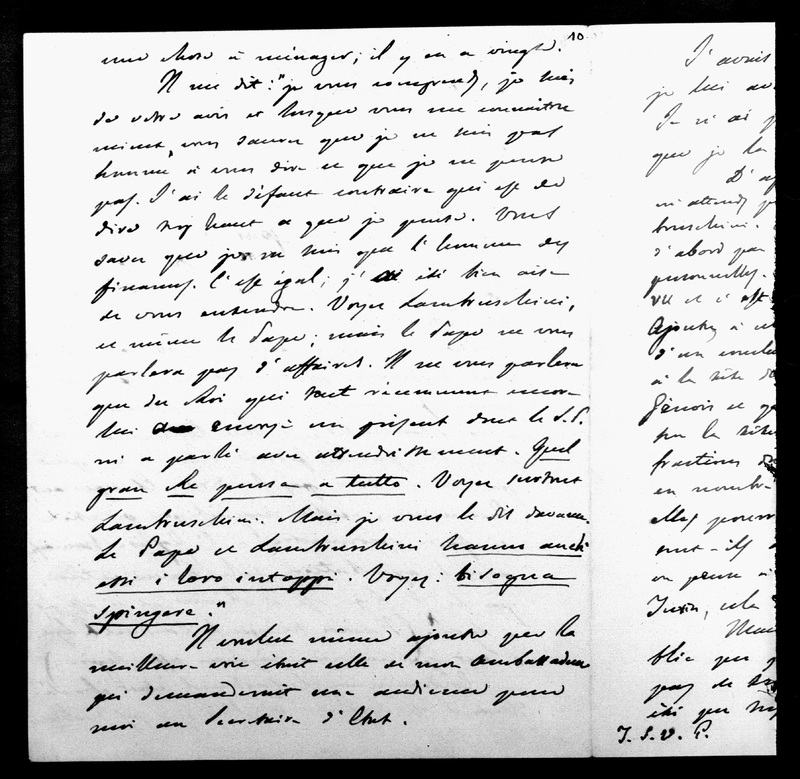 10
une chose à ménager; il y en a vingt.
Il me dit: "je vous comprends, je suis
de votre avis et lorsque vous me connaîtrez
mieux, vous saurez que je ne suis pas
homme à vous dire ce que je ne pense
pas. J'ai le défaut contraire qui est de
dire trop haut ce que je pense. Vous
savez que je ne suis que l'homme des
finances. C'est égal; j'ai été bien aise
de vous entendre. Voyez Lambruschini,
et même le Pape; mais le Pape ne vous
parlera pas d'affaires. Il ne vous parlera
que du Roi qui vient récemment encore
lui envoyer un présent dont le S.P.
m'a parlé avec attendrissement. Quel
gran Re pensa a tutto. Voyez surtout
Lambruschini. Mais je vous le dis d'avance,
Le Pape et Lambruschini hanno anch'
essi i loro intoppi. Voyez: bisogna
spingere."
Il voulut même ajouter que la
meilleure voie était celle de mon Ambassadeur
qui demanderait une audience pour
moi au Secrétaire d'Etat.
J'avais
je lui av
Je n'ai p
que je la
D'a
m'attends p
bruschini.
d'abord par
personnelles.
vu et c'est
Ajoutez à ce
d'un
à la tête d
Génois et q
par la
fractions d
en nombre
elles peuvent
ont-ils
on pense à
Turin, cela
Mai
blic que
pas de
été que
T. S. V. P.